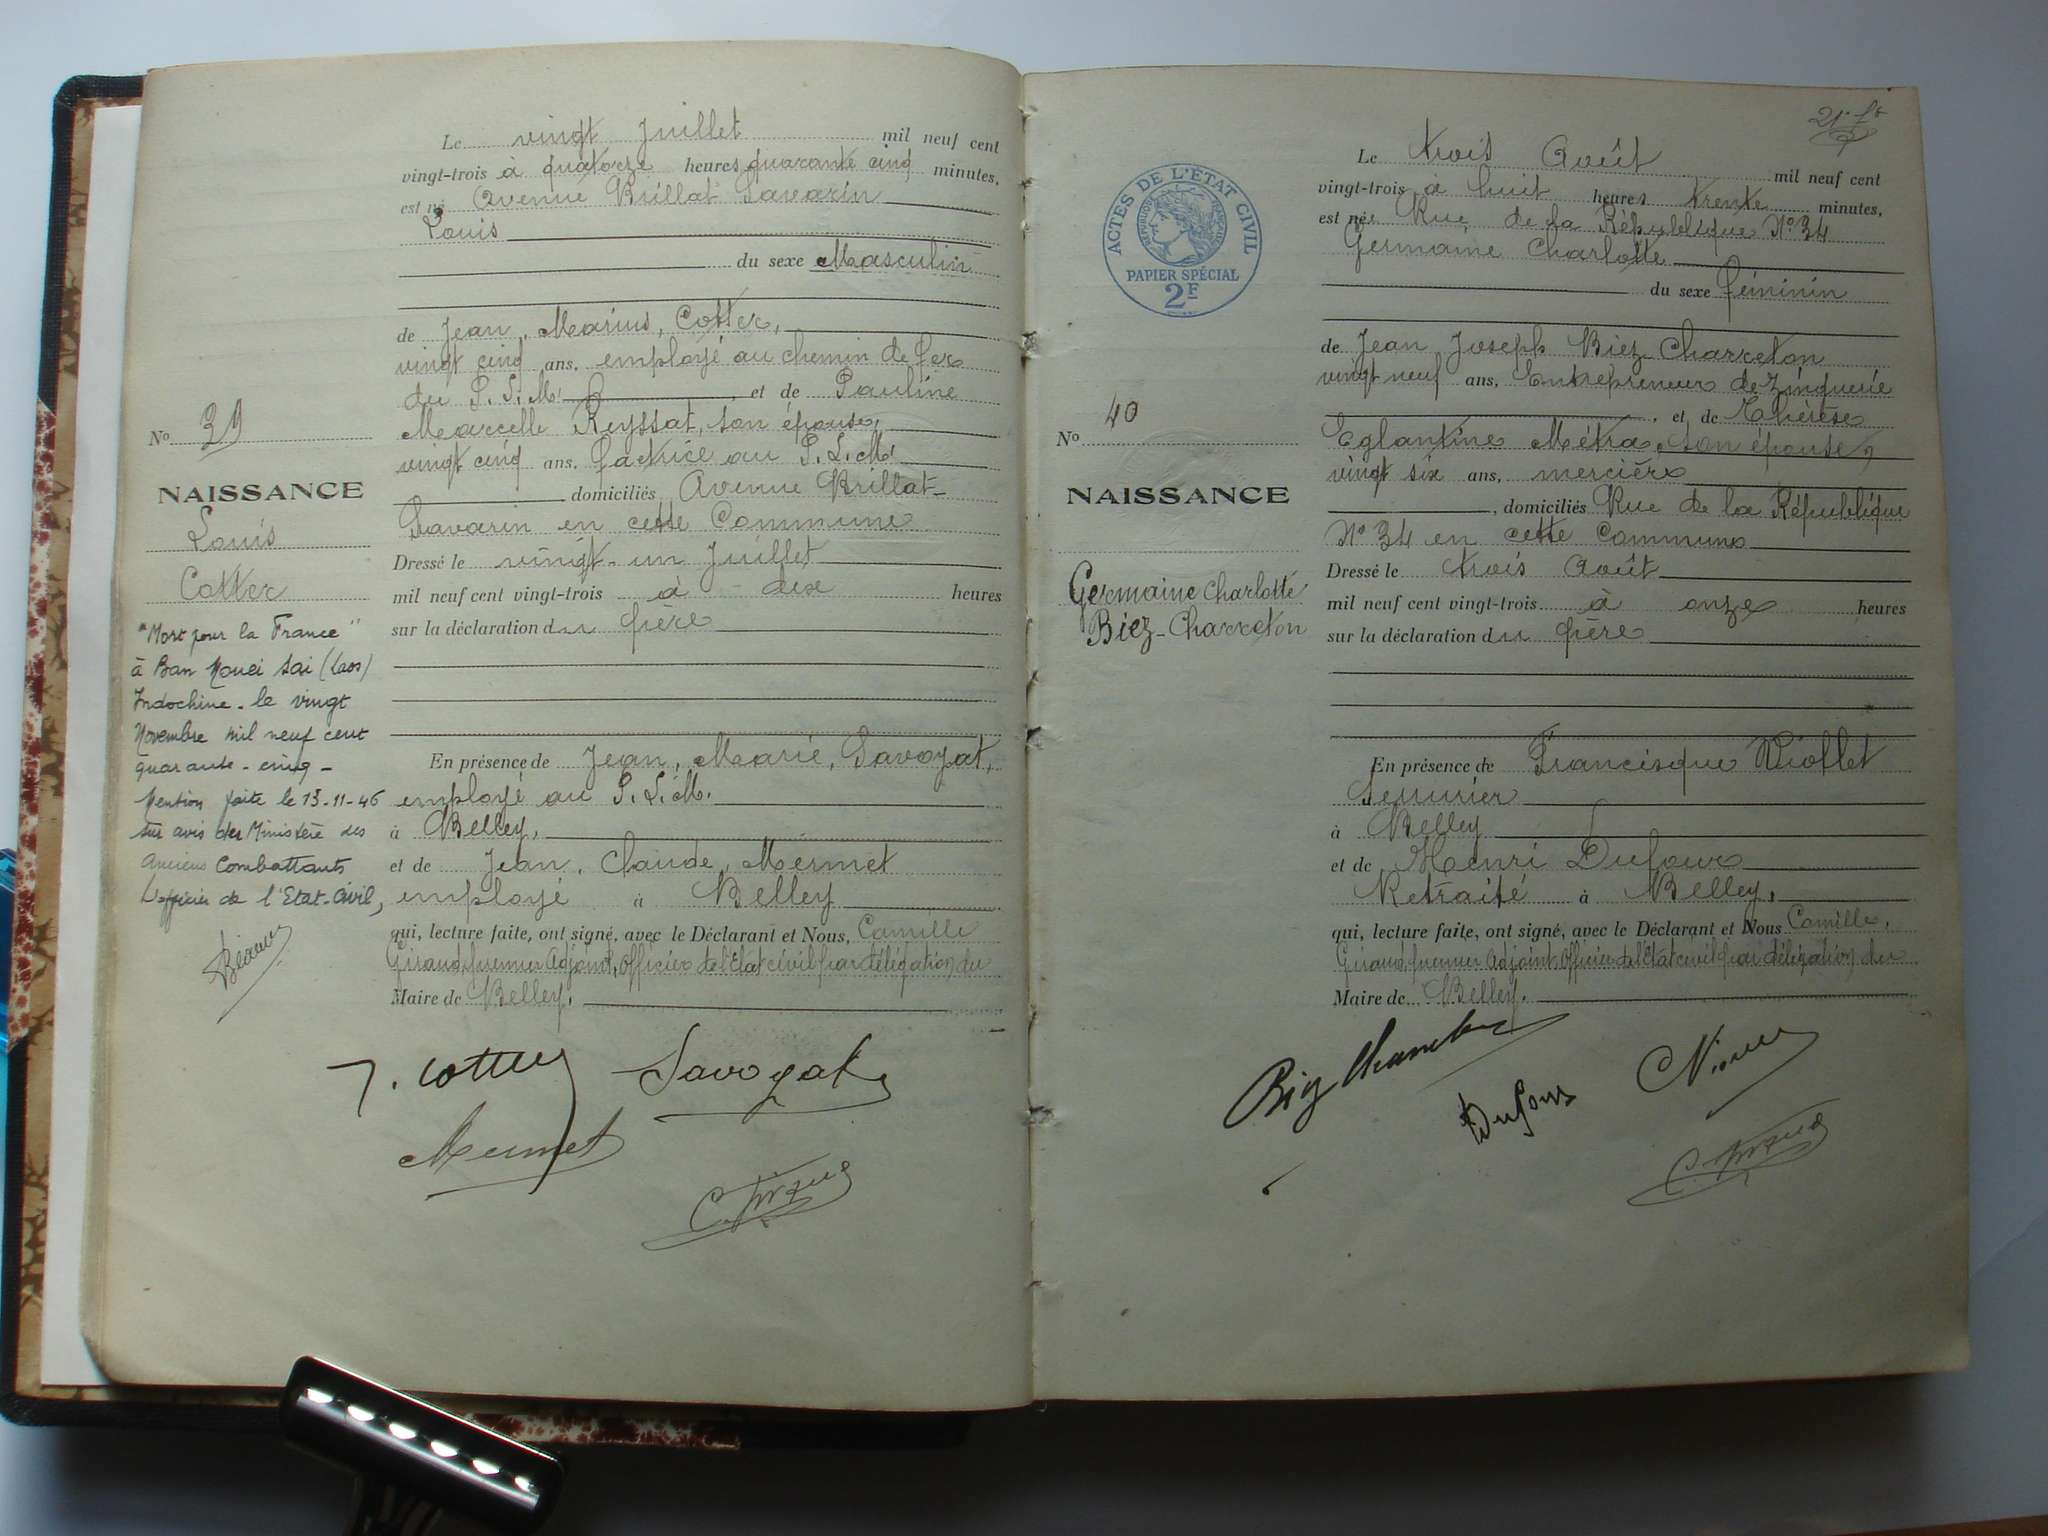 Le vingt Juillet mil neuf cent
vingt-trois à quatorze heures quarante cinq minutes,
est né Avenue Brillat Savarin
Louis
du sexe Masculin
de Jean, Marius, Cotter,
vingt cinq ans, employé au chemin de fer
du P. L. M. et de Pauline
Marcelle Reyssat, son épouse,
vingt cinq ans, factrice au P. L. M.
domiciliés Avenue Brillat-
Savarin en cette Commune
Dressé le vingt-un Juillet
mil neuf cent vingt-trois à dix heures
sur la déclaration du père
En présence de Jean, Marie, Savoyat,
employé au P. L. M.
à Belley,
et de Jean, Claude, Mermet
employé à Belley
qui, lecture faite, ont signé, avec le Déclarant et Nous, Camille
Giraud, premier Adjoint, Officier de l'Etat civil par délégation du
Maire de Belley.
J. Cotter Savoyat
Mermet
No 39
NAISSANCE
Louis
Cotter
"Mort pour la France"
à Ban Houei Sai (Laos)
Indochine - le vingt
Novembre mil neuf cent
quarante-cinq -
Mention faite le 13-11-46
sur avis du Ministère des
Anciens Combattants
L'officier de l'Etat-Civil,
ACTES DE L'ÉTAT CIVIL
RÉPUBLIQUE FRANÇAISE
PAPIER SPÉCIAL
2F
Le trois Août mil neuf cent
vingt-trois à huit heures trente minutes,
est née Rue de la République No 34
Germaine Charlotte
du sexe féminin
de Jean Joseph Biez-Charreton
vingt neuf ans, Entrepreneur de Zinguerie
, et de Thérèse
Eglantine Métra, son épouse,
vingt six ans, mercière
, domiciliés Rue de la République
No 34 en cette Commune
Dressé le trois Août
mil neuf cent vingt-trois à onze heures
sur la déclaration du père
En présence de Francisque Viollet
Serrurier
à Belley
et de Henri Dufour
Retraité à Belley,
qui, lecture faite, ont signé, avec le Déclarant et Nous Camille,
Giraud, premier Adjoint, Officier de l'Etat civil par délégation du
Maire de Belley.
Biez Charreton
Dufour
No 40
NAISSANCE
Germaine Charlotte
Biez-Charreton